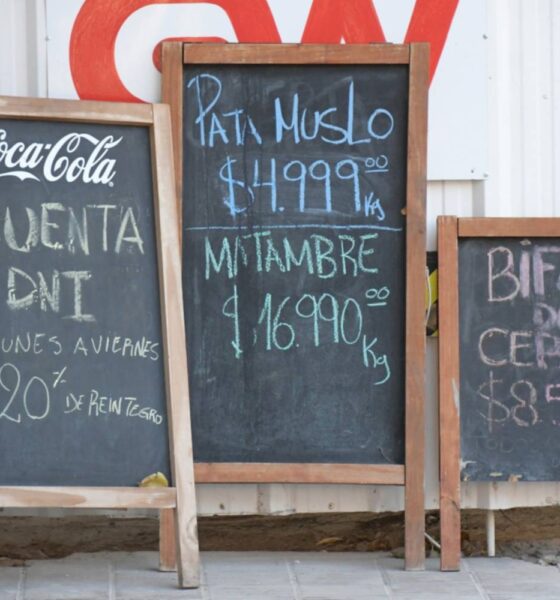 Coca-Cola
UENTA
DNI
UNES A VIERNES
20% DE REINTEGRO
PATA MUSLO
$4.999,00 Kg
MATAMBRE
$16.990,00
Kg
BIF
DE
CER
$8.5